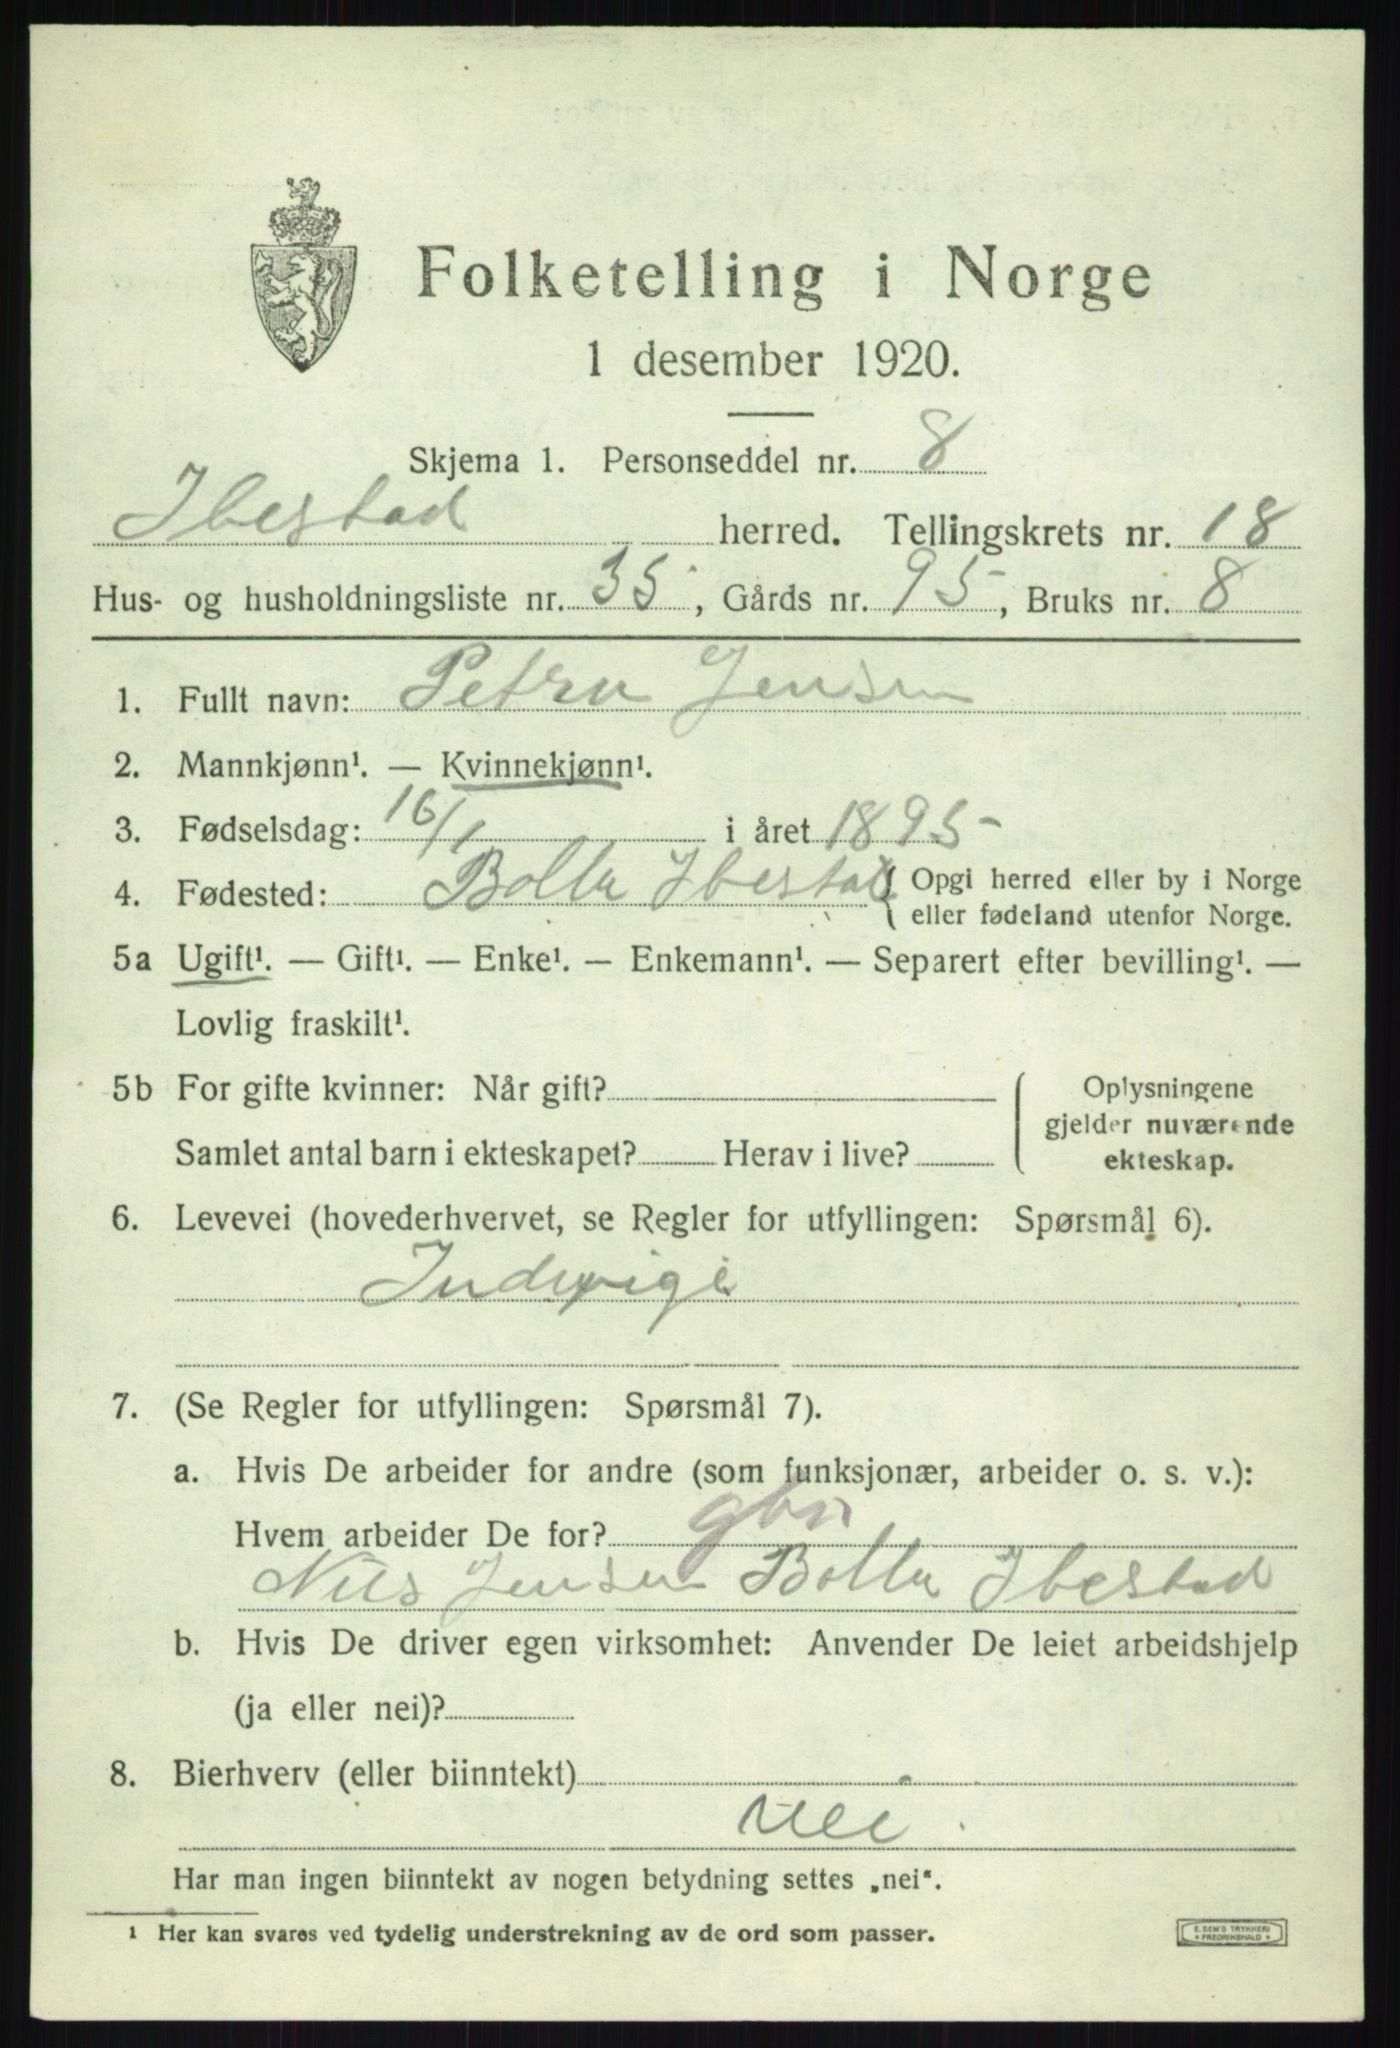 Folketelling i Norge
1 desember 1920.
Skjema 1. Personseddel nr. 8
Ibestad herred. Tellingskrets nr. 18
Hus- og husholdningsliste nr. 35, Gårds nr. 95, Bruks nr. 8
1. Fullt navn: Petra Jensen
2. Mannkjønn¹. — Kvinnekjønn¹.
3. Fødselsdag: 16/1 i året 1895
4. Fødested: Bolla Ibestad { Opgi herred eller by i Norge
eller fødeland utenfor Norge.
5a Ugift¹. — Gift¹. — Enke¹. — Enkemann¹. — Separert efter bevilling¹. —
Lovlig fraskilt¹.
5b For gifte kvinner: Når gift?
Samlet antal barn i ekteskapet? Herav i live?
Oplysningene
gjelder nuværende
ekteskap.
6. Levevei (hovederhvervet, se Regler for utfyllingen: Spørsmål 6).
7. (Se Regler for utfyllingen: Spørsmål 7).
a. Hvis De arbeider for andre (som funksjonær, arbeider o. s. v.):
Hvem arbeider De for?
Nils Jensen Bolla Ibestad
b. Hvis De driver egen virksomhet: Anvender De leiet arbeidshjelp
(ja eller nei)?
8. Bierhverv (eller biinntekt)
nei.
Har man ingen biinntekt av nogen betydning settes „nei“.
1 Her kan svares ved tydelig understrekning av de ord som passer.
E. SEM'S TRYKKERI
* FREDRIKSHALD *